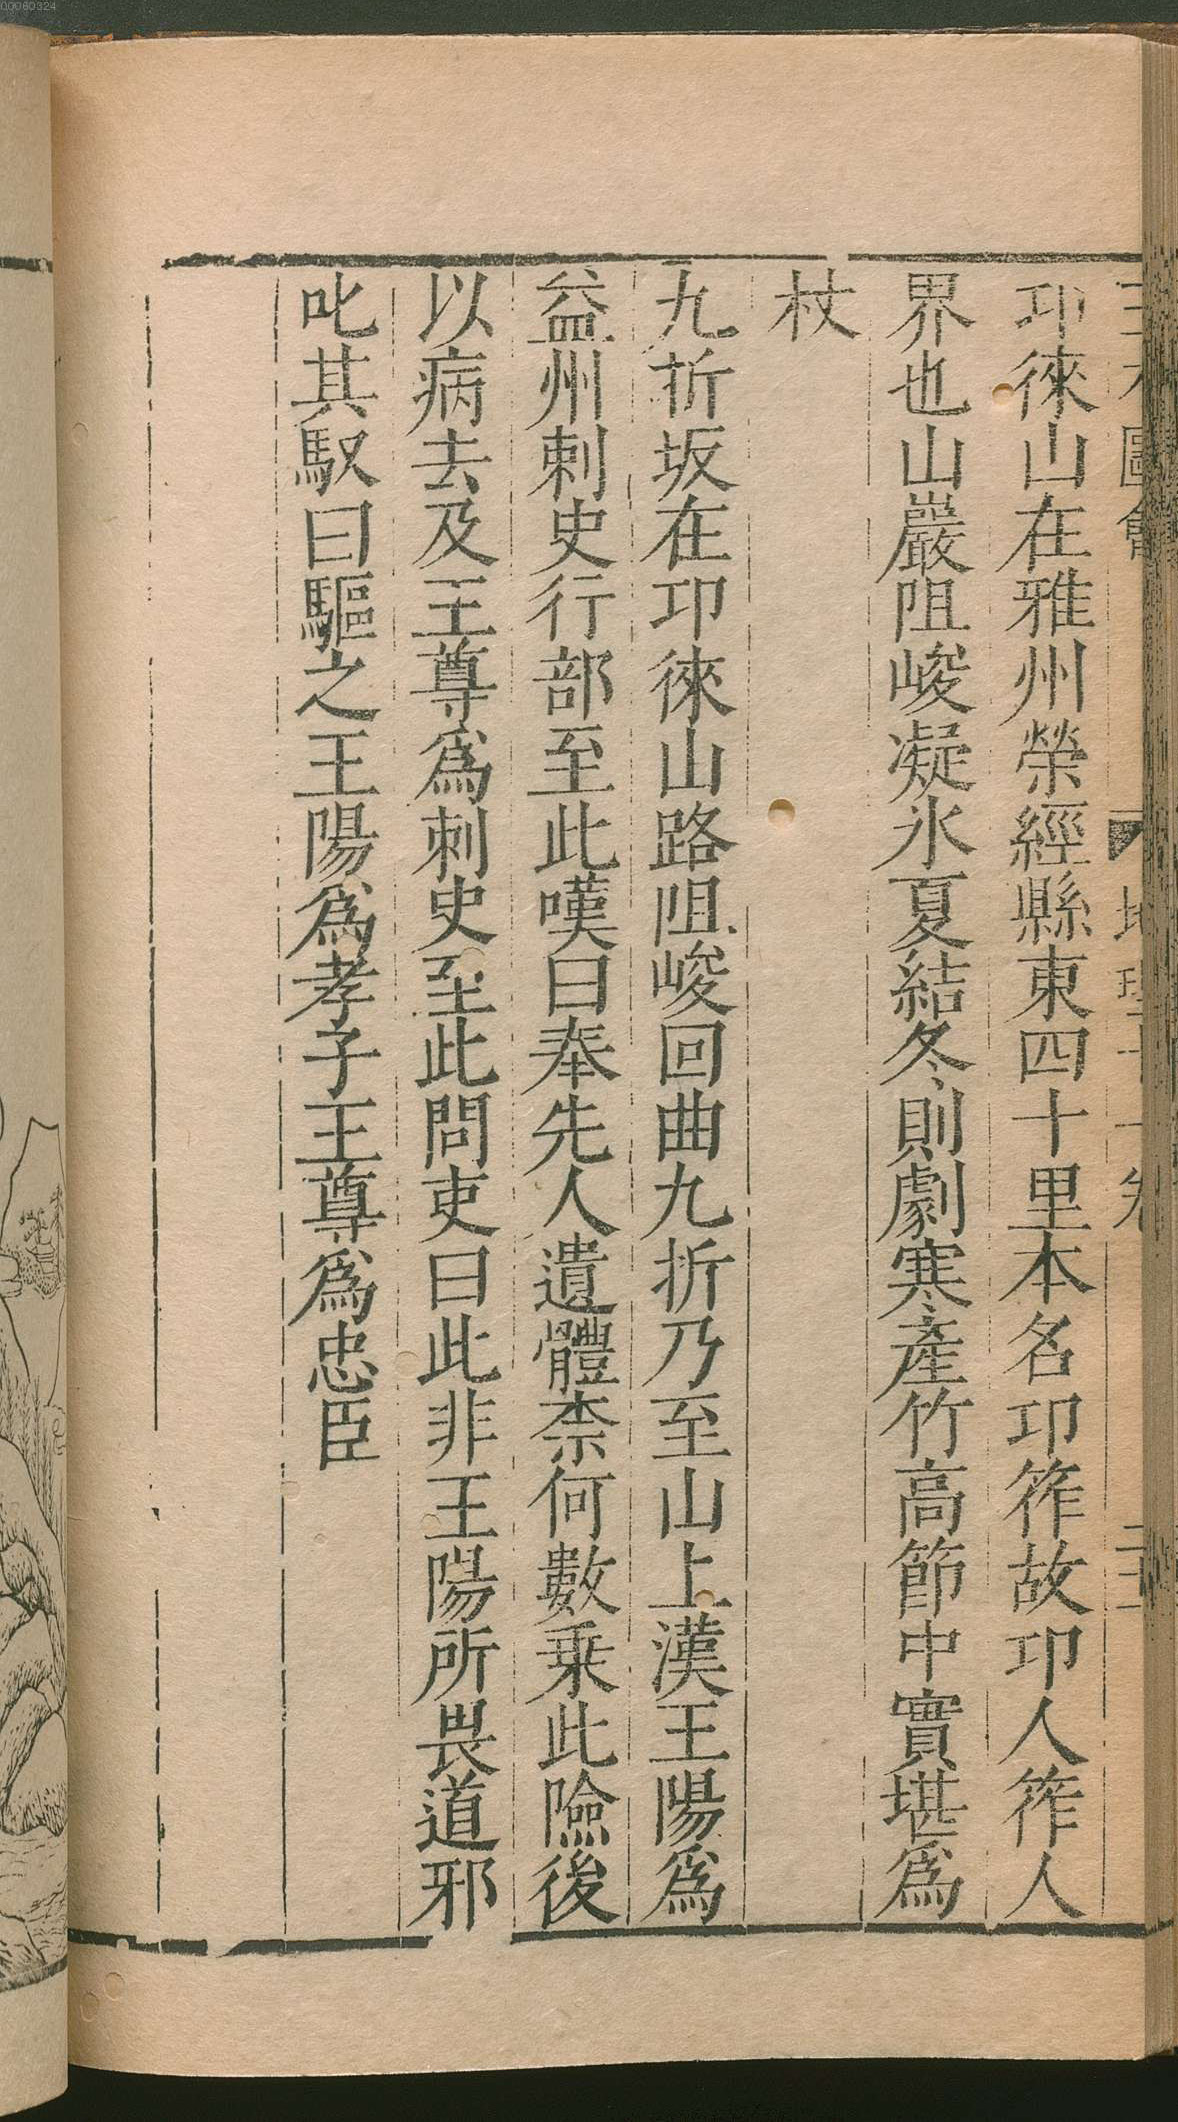 00060324
三才圖會 地理十一卷
卭徠山在雅州榮經縣東四十里本名卭筰故卭人筰人
界也山巖阻峻凝氷夏結冬則劇寒產竹高節中實堪爲
杖
九折坂在卭徠山路阻峻回曲九折乃至山上漢王陽爲
益州刺史行部至此嘆曰奉先人遺體柰何數乗此險後
以病去及王尊爲刺史至此問吏曰此非王陽所畏道邪
叱其馭曰驅之王陽爲孝子王尊爲忠臣